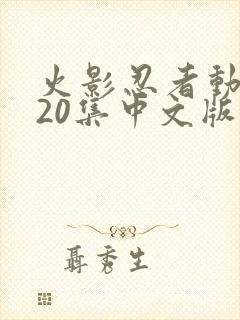 火影忍者動
20集中文版
聶秀生